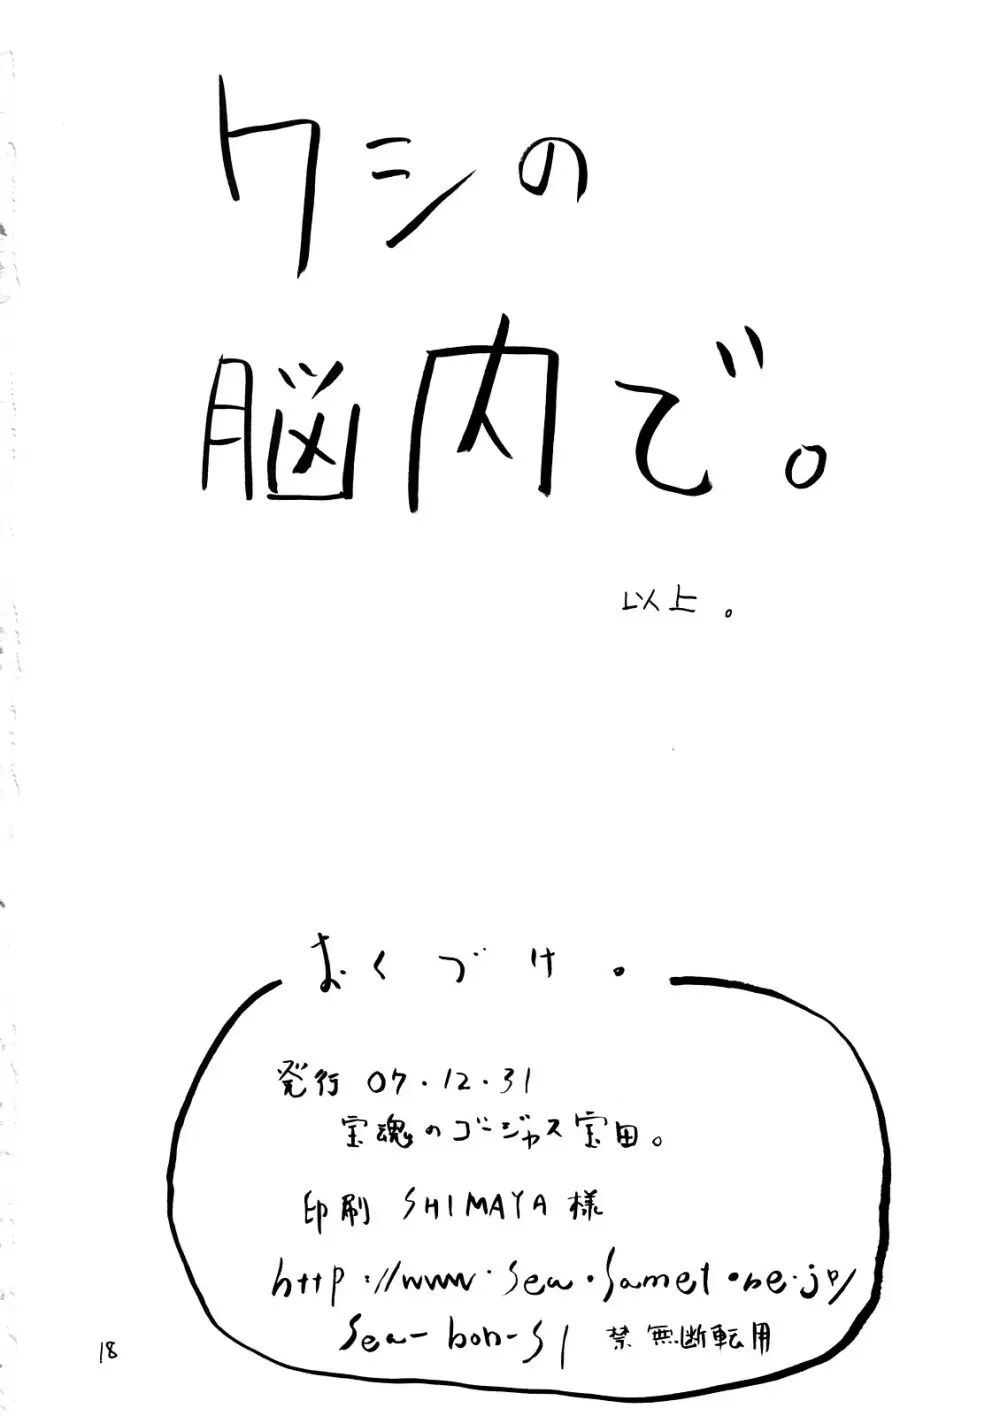 ワシの
脳内で。
以上。
おくづけ。
発行 07.12.31
宝魂のゴージャス宝田。
印刷 SHIMAYA様
http://www.sea.sannet.ne.jp/
sea-bon-s1 禁無断転用
18